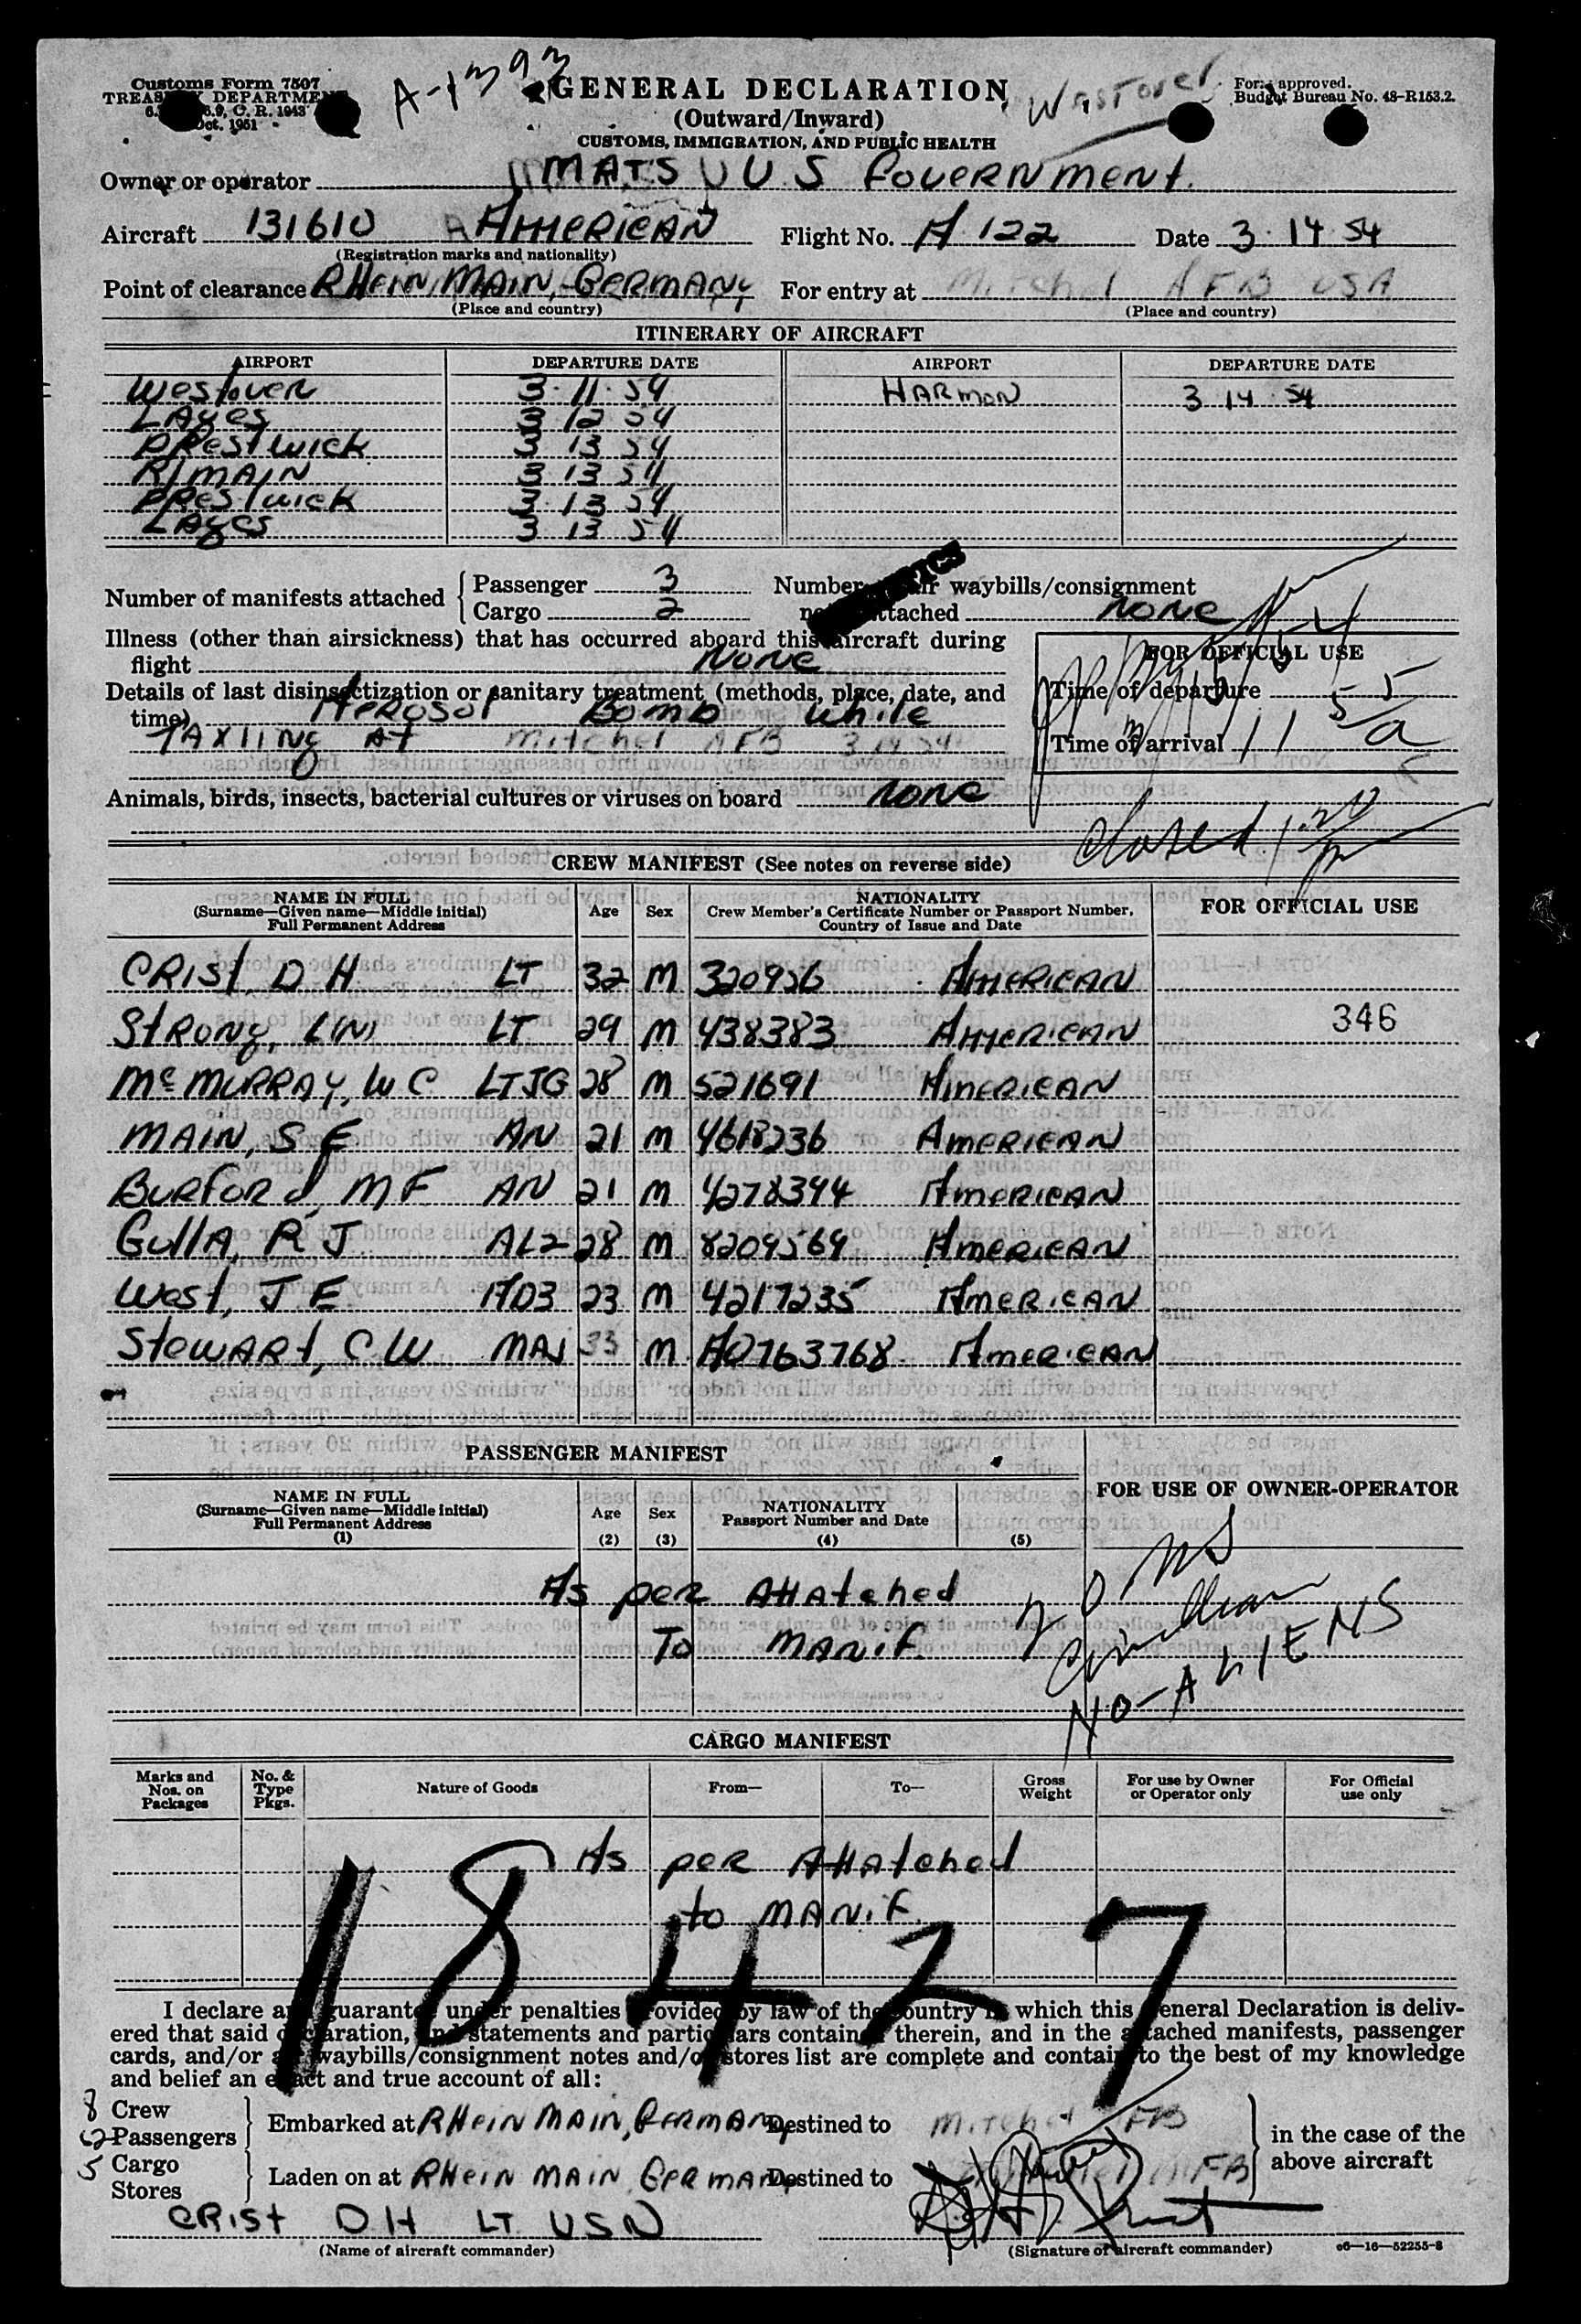 Customs Form 7507
TREASURY DEPARTMENT
C. R. 1943
Oct. 1951
A-1393
GENERAL DECLARATION
(Outward/Inward)
CUSTOMS, IMMIGRATION, AND PUBLIC HEALTH
Westover
Form approved.
Budget Bureau No. 48-R153.2.
Owner or operator MATS U S GOVERNMENT.
Aircraft 131610 AMERICAN Flight No. A 122 Date 3 14 54
(Registration marks and nationality)
Point of clearance RHEIN MAIN, GERMANY For entry at Mitchel AFB USA
(Place and country) (Place and country)
ITINERARY OF AIRCRAFT
AIRPORT DEPARTURE DATE AIRPORT DEPARTURE DATE
Westover 3.11.54 HARMON 3 14 54
LAges 3 12 54
PRestwick 3 13 54
R/MAIN 3 13 54
PRestwick 3.13 54
LAges 3 13 54
Number of manifests attached Passenger 3 Number air waybills/consignment
Cargo 2 attached none
Illness (other than airsickness) that has occurred aboard this aircraft during
flight none
FOR OFFICIAL USE
Details of last disinsectization or sanitary treatment (methods, place, date, and
time) Aerosol Bomb while
Time of departure
TAXIING AT Mitchel AFB 3 14 54
Time of arrival 11 55 a
Animals, birds, insects, bacterial cultures or viruses on board none
closed 1:20
CREW MANIFEST (See notes on reverse side)
NAME IN FULL
(Surname—Given name—Middle initial)
Full Permanent Address
Age Sex
NATIONALITY
Crew Member's Certificate Number or Passport Number,
Country of Issue and Date
FOR OFFICIAL USE
CRIST, D H LT 32 M 320926 AMERICAN
STRONG, LT 29 M 438383 AMERICAN 346
McMURRAY, W C LTJG 28 M 521691 AMERICAN
MAIN, S E AN 21 M 4618236 AMERICAN
BURFORd, M F AN 21 M 4278394 AMERICAN
GullA, R J AL2 28 M 8209569 AMERICAN
West, J E AD3 23 M 4217235 AMERICAN
StewARt, C W MAJ 33 M AO763768 AMERICAN
PASSENGER MANIFEST
NAME IN FULL
(Surname—Given name—Middle initial)
Full Permanent Address
(1)
Age
(2)
Sex
(3)
NATIONALITY
Passport Number and Date
(4) (5)
FOR USE OF OWNER-OPERATOR
As per AttAtched
To MANIF.
NO-ALIENS
CARGO MANIFEST
Marks and Nos. on Packages
No. & Type Pkgs.
Nature of Goods
From—
To—
Gross Weight
For use by Owner or Operator only
For Official use only
As per AttAtched
to MANIF.
18427
I declare and guarantee under penalties provided by law of the country in which this General Declaration is deliv-
ered that said declaration, and statements and particulars contained therein, and in the attached manifests, passenger
cards, and/or air waybills/consignment notes and/or stores list are complete and contain to the best of my knowledge
and belief an exact and true account of all:
8 Crew
Passengers
Embarked at RHEIN MAIN, GERMANY Destined to Mitchel AFB
in the case of the
above aircraft
5 Cargo
Stores
Laden on at RHEIN MAIN GERMANY Destined to Mitchel AFB
CRIST D H LT USN
(Name of aircraft commander) (Signature of aircraft commander)
c6—16—52255-8